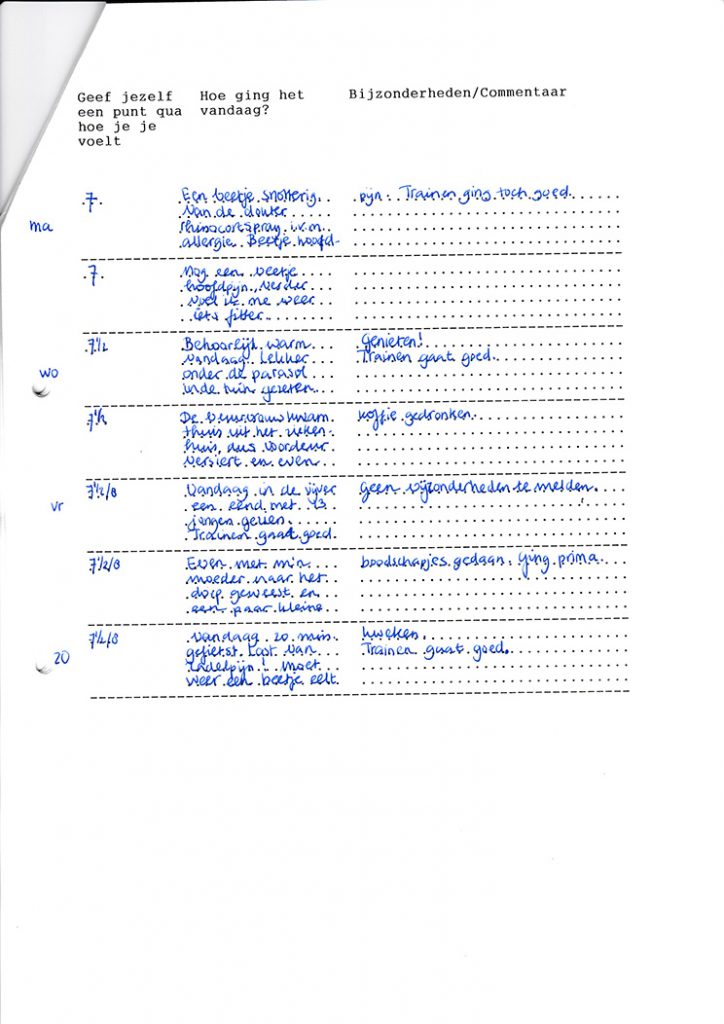 Geef jezelf een punt qua hoe je je voelt
Hoe ging het vandaag?
Bijzonderheden/Commentaar
ma
7.
Een beetje snotterig
van de
rhinocortspray i.v.m.
allergie. Beetje hoofd-
pijn. Trainen ging toch goed.
7.
Nog een beetje
hoofdpijn, verder
voel ik me weer
iets fitter.
wo
7 1/2
Behoorlijk warm
vandaag. Lekker
onder de parasol
in de tuin gezeten.
Genieten!
Trainen gaat goed.
7 1/2
De buurvrouw kwam
thuis uit het zieken-
huis, dus voordeur
versiert en even
koffie gedronken.
vr
7 1/2/8
Vandaag in de vijver
een eend met 13
jongen gezien.
Trainen gaat goed.
Geen bijzonderheden te melden.
7 1/2/8
Even met mijn
moeder naar het
dorp geweest en
een paar kleine
boodschapjes gedaan. Ging prima.
zo
7 1/2/8
Vandaag 20 min.
gefietst. Last van
zadelpijn! Moet
weer een beetje eelt
kweken.
Trainen gaat goed.